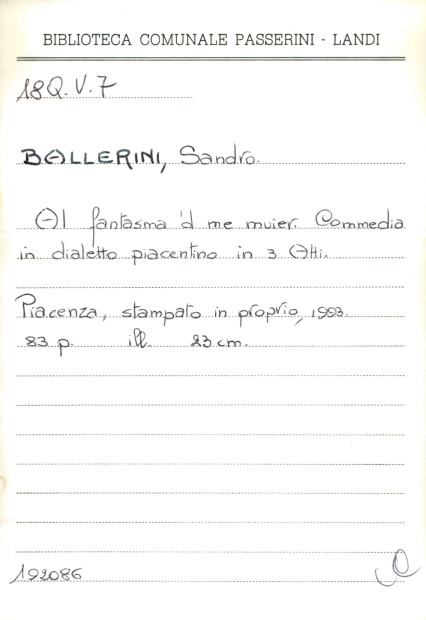 BIBLIOTECA COMUNALE PASSERINI - LANDI
18Q.V.7
BALLERINI, Sandro.
Al fantasma 'd me muier. Commedia
in dialetto piacentino in 3 Atti.
Piacenza, stampato in proprio, 1993.
83 p. ill. 23 cm.
192086